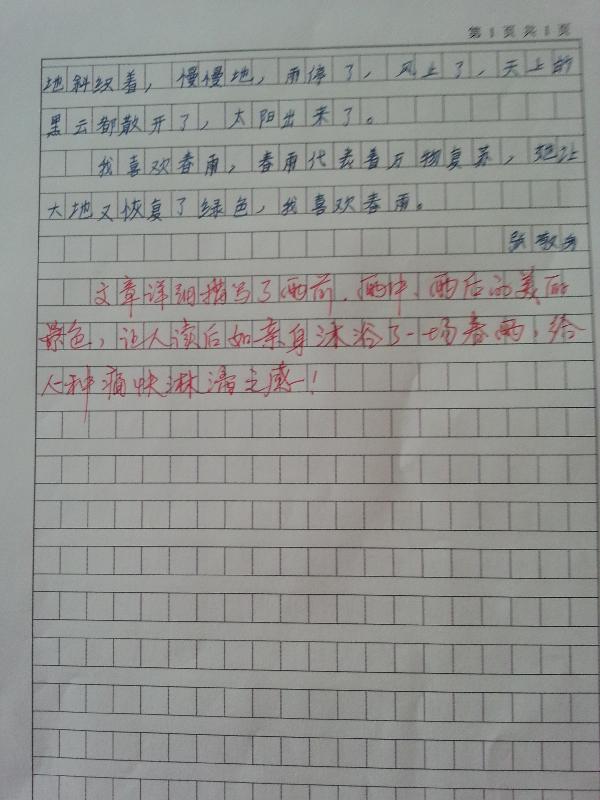 第1页共1页
地斜织着，慢慢地，雨停了，风上了，天上的
黑云都散开了，太阳出来了。
我喜欢春雨，春雨代表着万物复苏，迎让
大地又恢复了绿色，我喜欢春雨。
张
文章详细描写了雨前、雨中、雨后的美丽
景色，让人读后如亲身沐浴了一场春雨，给
人种痛快淋漓之感！